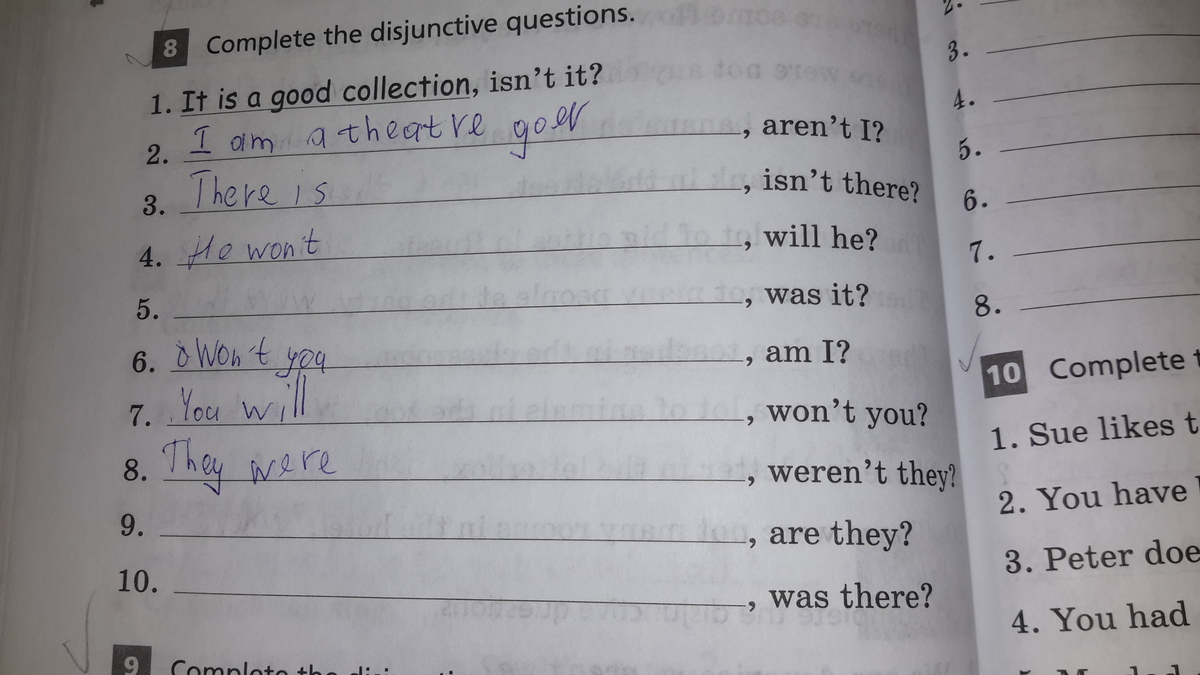 8 Complete the disjunctive questions.
1. It is a good collection, isn't it?
2. I am a theatre goer, aren't I?
3. There is, isn't there?
4. He won't, will he?
5. , was it?
6. won't you, am I?
7. You will, won't you?
8. They were, weren't they?
9. , are they?
10. , was there?
9 Complete the
2.
3.
4.
5.
6.
7.
8.
10 Complete
1. Sue likes
2. You have
3. Peter doe
4. You had